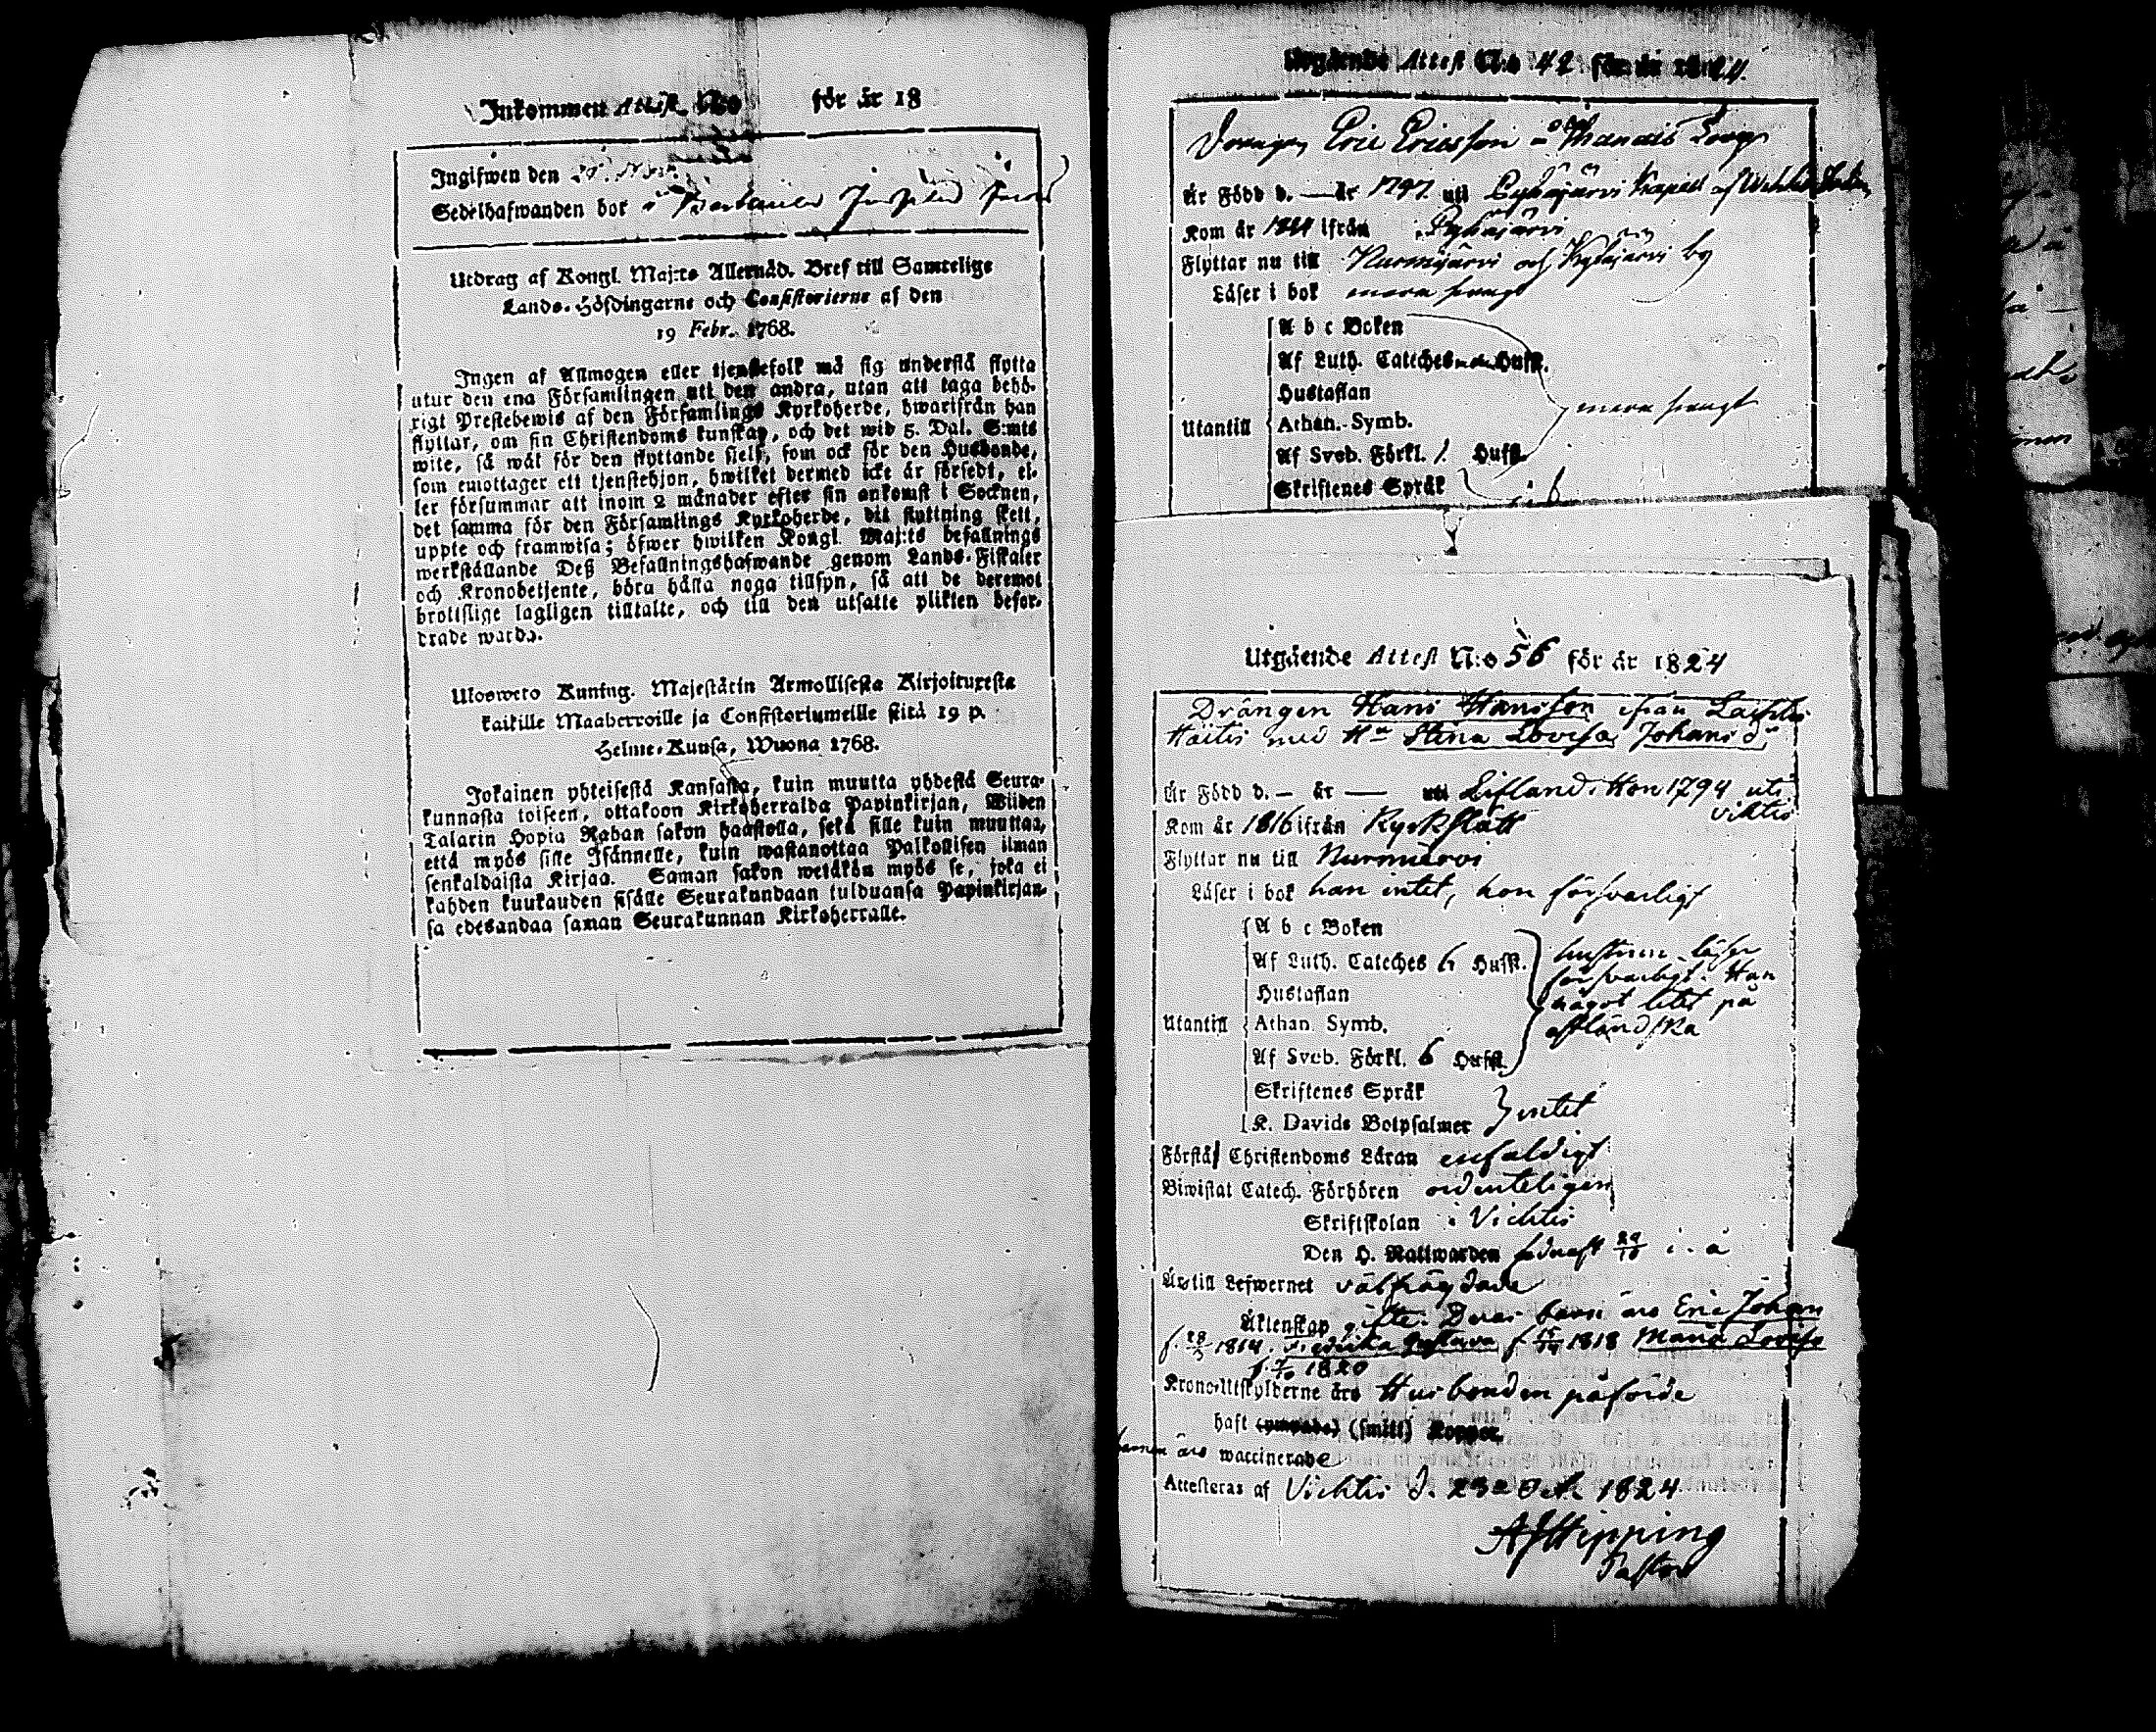 Inkommen Attest N:o för år 18
Ingifwen den
Sedelhafwanden bor å
Utdrag af Kongl. Maj:ts Allernåd. Bref till Samtelige
Lands-Höfdingarne och Consistorierne af den
19 Febr. 1768.
Ingen af Allmogen eller tjenstefolk må sig understå flytta
utur den ena Församlingen uti den andra, utan att taga behö-
rigt Prestebewis af den Församlings Kyrkoherde, hwarifrån han
flyttar, om sin Christendoms kunskap, och det wid 5. Dal. S:mts
wite, så wäl för den flyttande sjelf, som ock för den Husbonde,
som emottager ett tjenstehjon, hwilket dermed icke är försedt, el-
ler försummar att inom 2 månader efter sin ankomst i Socknen,
det samma för den Församlings Kyrkoherde, dit flyttning skett,
uppte och framwisa; öfwer hwilken Kongl. Maj:ts befallnings
werkställande Deß Befallningshafwande genom Lands-Fiskaler
och Kronobetjente, böra hålla noga tillsyn, så att de deremot
brottslige lagligen tilltalte, och till den utsatte plikten befor-
drade warda.
Ulosweto Kuning. Majestätin Armollisesta Kirjoituxesta
kaikille Maaherroille ja Consistoriumeille siitä 19 p.
Helme-Kuusa, Wuona 1768.
Jokainen yhteisestä Kansasta, kuin muutta yhdestä Seura-
kunnasta toiseen, ottakoon Kirkoherralda Papinkirjan, Wiiden
Talarin Hopia Rahan sakon haastolla, sekä sille kuin muuttaa,
että myös sille Isännelle, kuin wastanottaa Palkollisen ilman
senkaldaista Kirjaa. Saman sakon wetäkön myös se, joka ei
kahden kuukauden sisälle Seurakundaan tulduansa Papinkirjan-
sa edesandaa saman Seurakunnan Kirkoherralle.
Utgående Attest N:o 42 för år 1824.
Drängen Eric Ericsson
Är Född d. — år 1797. uti Pyhäjärvi Kapell af
Kom år ifrån Pyhäjärvi
Flyttar nu till Nurmijärvi och by
Läser i bok svagt
A b c Boken
Af Luth. Cateches Hufst.
Hustaflan
Utantill Athan. Symb. svagt
Af Sveb. Förkl. 1. Hufst.
Skriftenes Språk
Utgående Attest N:o 56 för år 1824
Drängen Hans Hansson ifrån
med Hu Stina Lovisa Johansdr
Är Född d. — år — uti Lifland. Hon 1794 uti
Vichtis
Kom år 1816 ifrån Kyrkslätt
Flyttar nu till Nurmijärvi
Läser i bok han intet, hon försvarligt
A b c Boken
Af Luth. Cateches 6 Hufst. hustrun läser
försvarligt. Han
Hustaflan något litet på
Utantill Athan. Symb. estländska
Af Sveb. Förkl. 6 Hufst.
Skriftenes Språk
K. Davids Botpsalmer intet
Förstå Christendoms Läran enfaldigt
Biwistat Catech. Förhören ordenteligen
Skriftskolan i Vichtis
Den H. Nattwarden sednast i. å
Äro till Lefwernet välfrägdade
Äktenskap gifte. Deras barn äro Eric Johan
f. 1814. Fredrika Gustava f. 1818 Maria Lovisa
f. 1820
Krono-Utskylderne äro Husbonden påförde
haft (ympade) (smitt) Koppor.
barnen äro waccinerade
Attesteras af Vichtis d. 29 Oct. 1824
AJ Hipping
Pastor